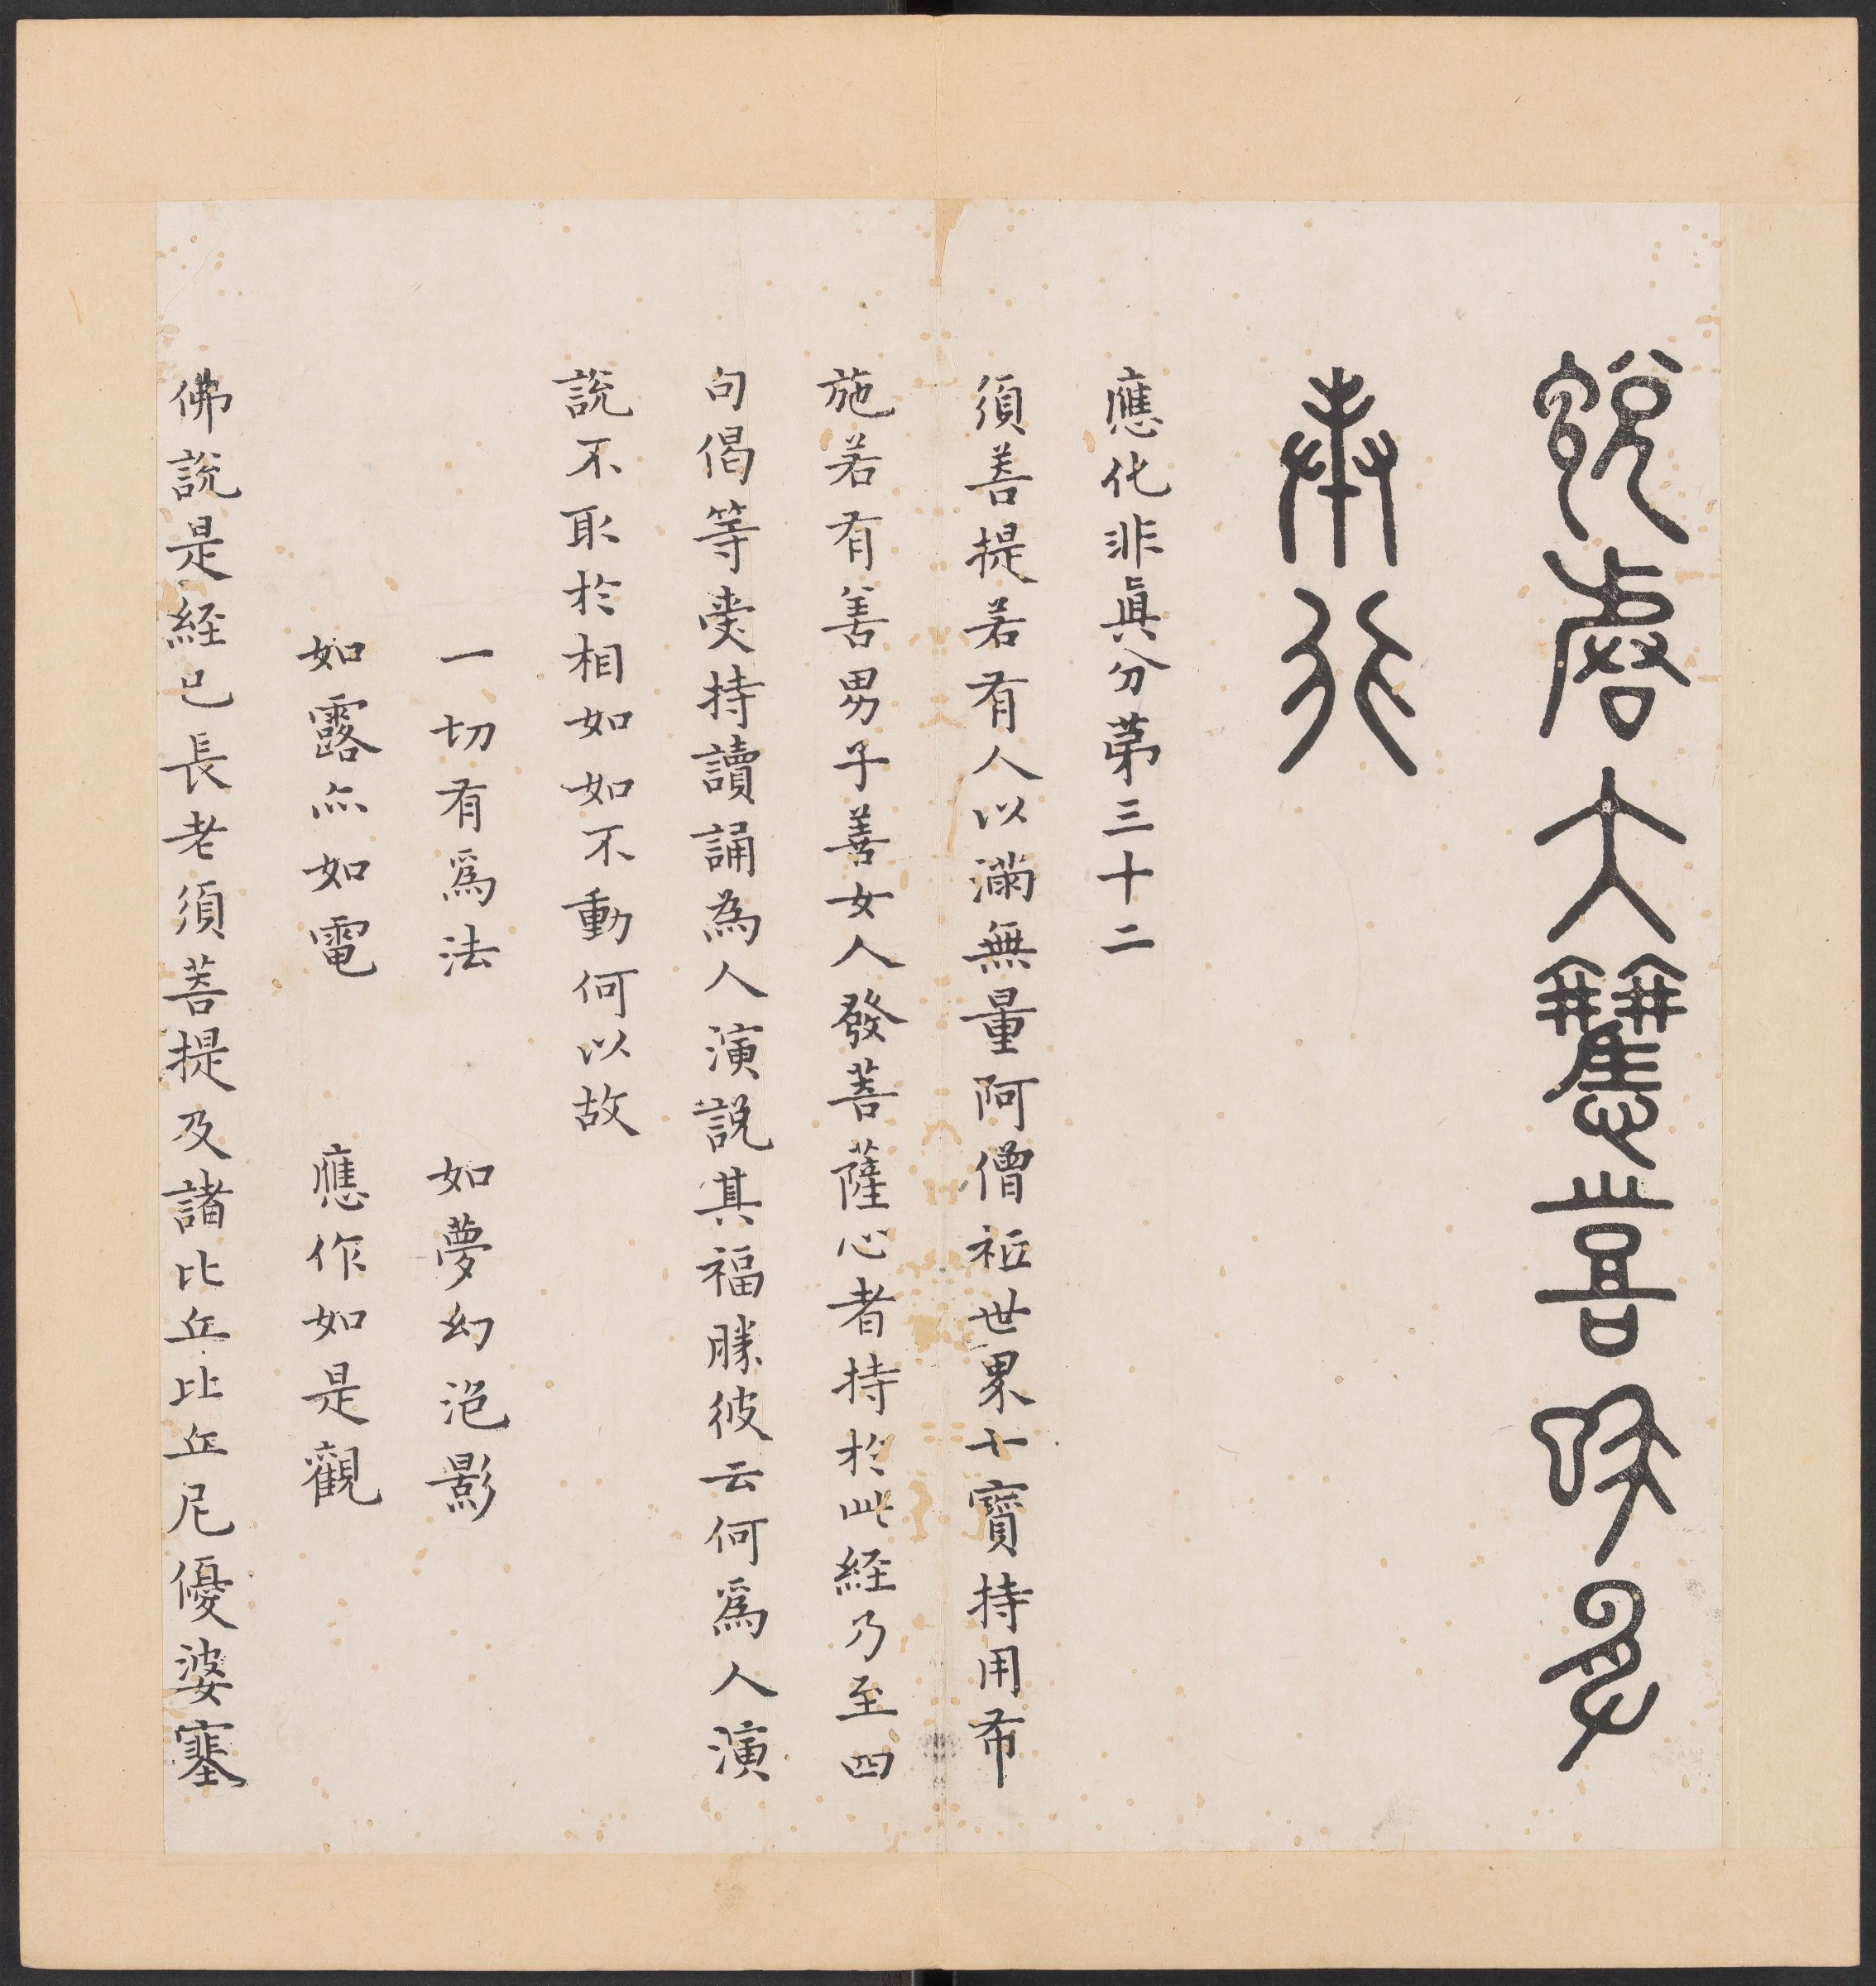 說皆大歡喜信受
奉行
應化非眞分苐三十二
須菩提若有人以滿無量阿僧祇世界七寶持用布
施若有善男子善女人發菩薩心者持於此経乃至四
句偈等受持讀誦為人演說其福勝彼云何爲人演
說不取於相如如不動何以故
一切有爲法 如夢幻泡影
如露亦如電 應作如是觀
佛說是経已長老須菩提及諸比丘比丘尼優婆塞